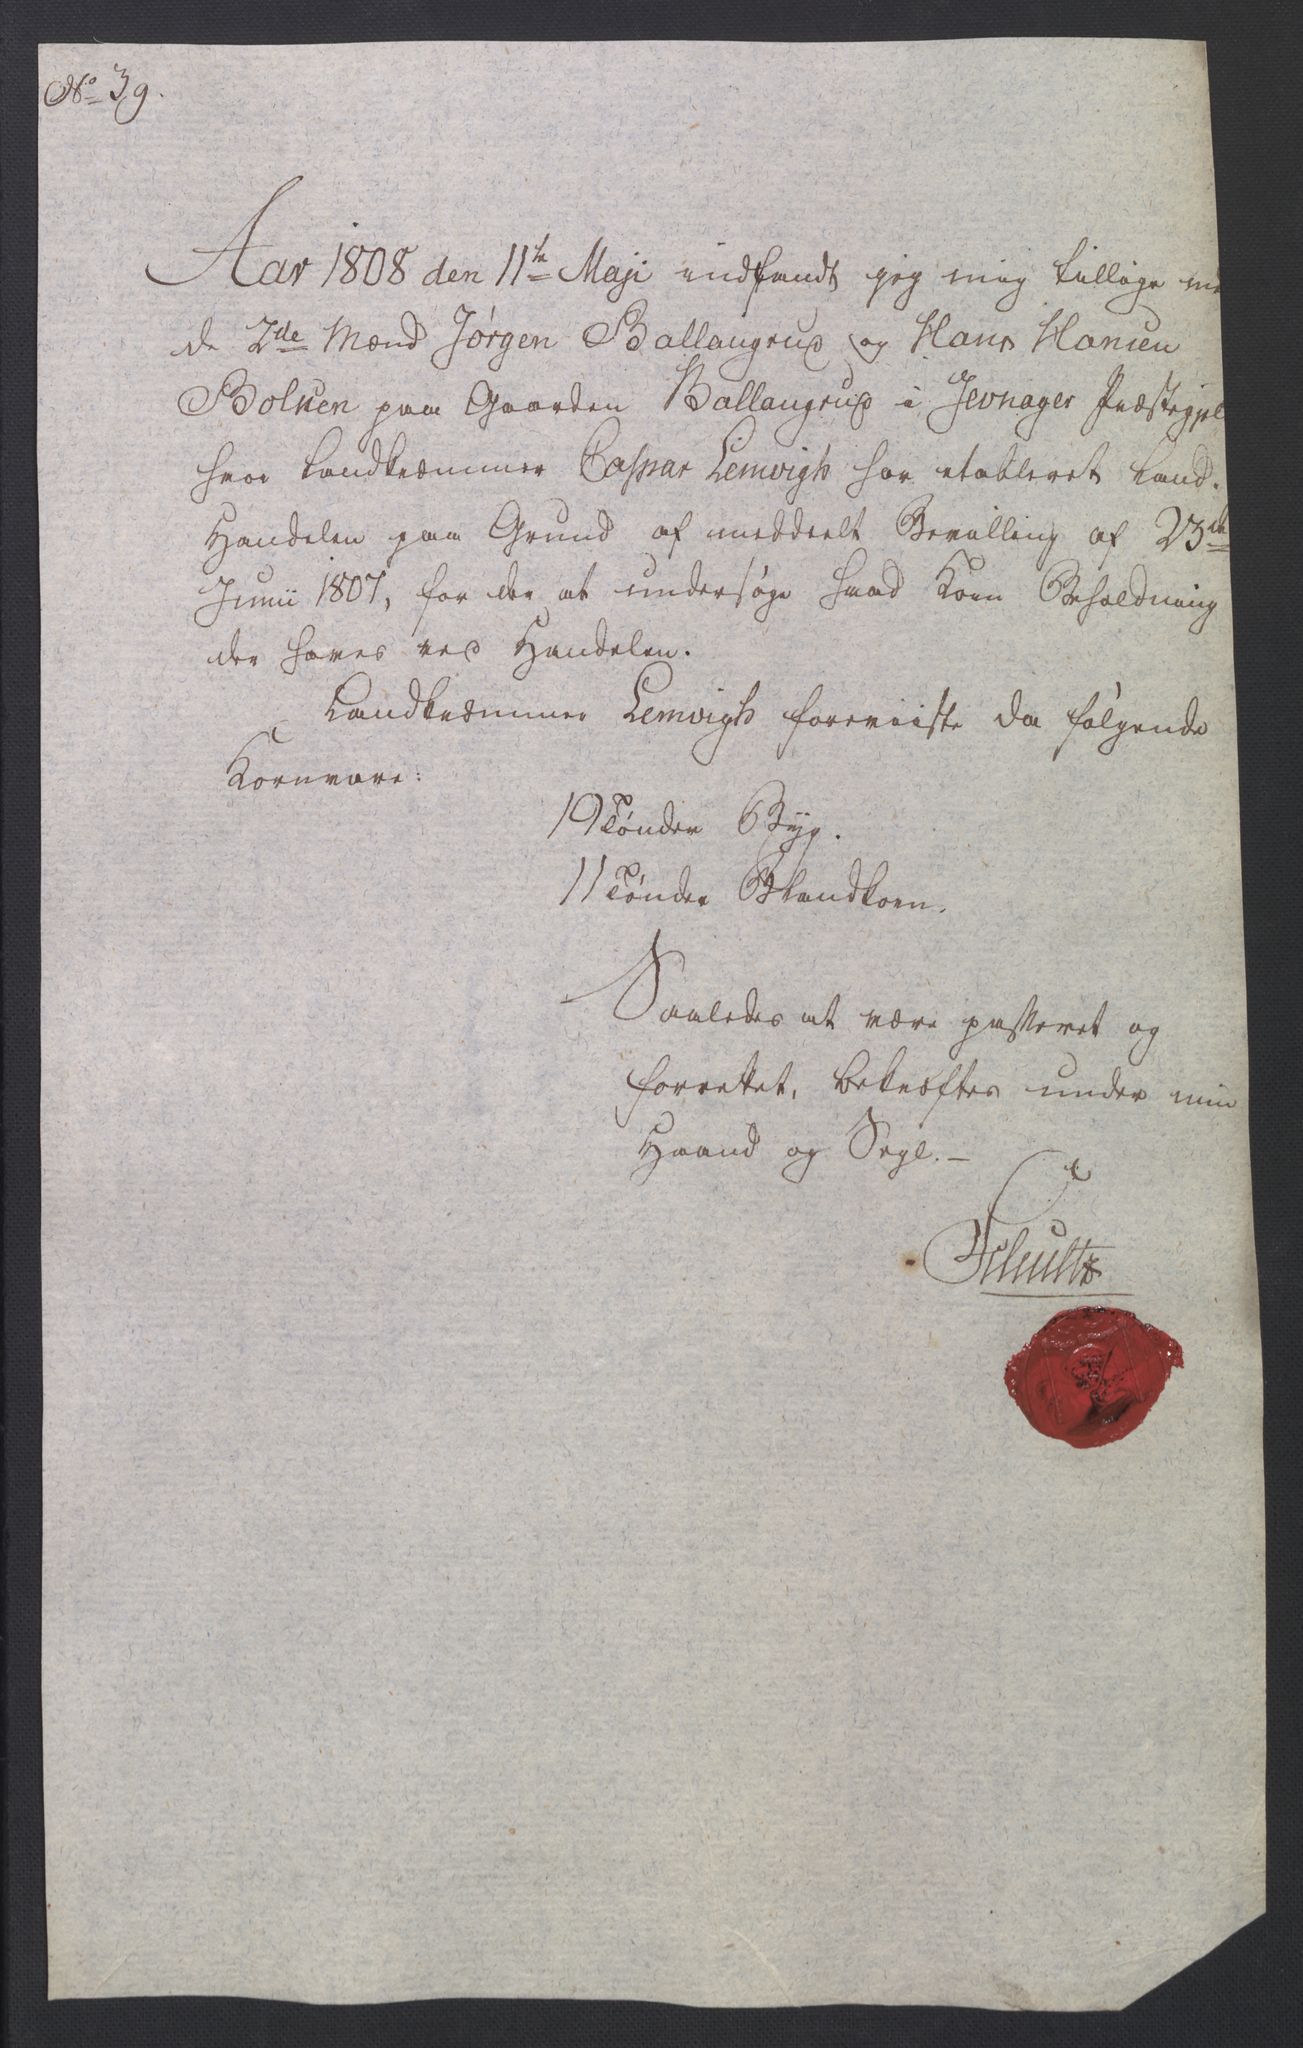 No 39.
Aar 1808 den 11te Maji indfandt jeg mig tillige med
de 2de Mænd Jørgen Ballangrud og Hans Hansen
Bolken paa Gaarden Ballangrud i Jevnager Præstegjel
hvor Landkræmmer Caspar Lemvigh har etableret Land-
Handelen paa Grund af meddeelt Bevilling af 23de
Junii 1807, for der at undersøge hvad Korn Beholdning
der haves ved Handelen.
Landkræmmer Lemvigh foreviiste da følgende
Kornvare:
19 Tønder Byg.
11 Tønder Blandkorn.
Saaledes at være passeret og
forrettet, bekræftes under min
Haand og Segl. –
Schultz